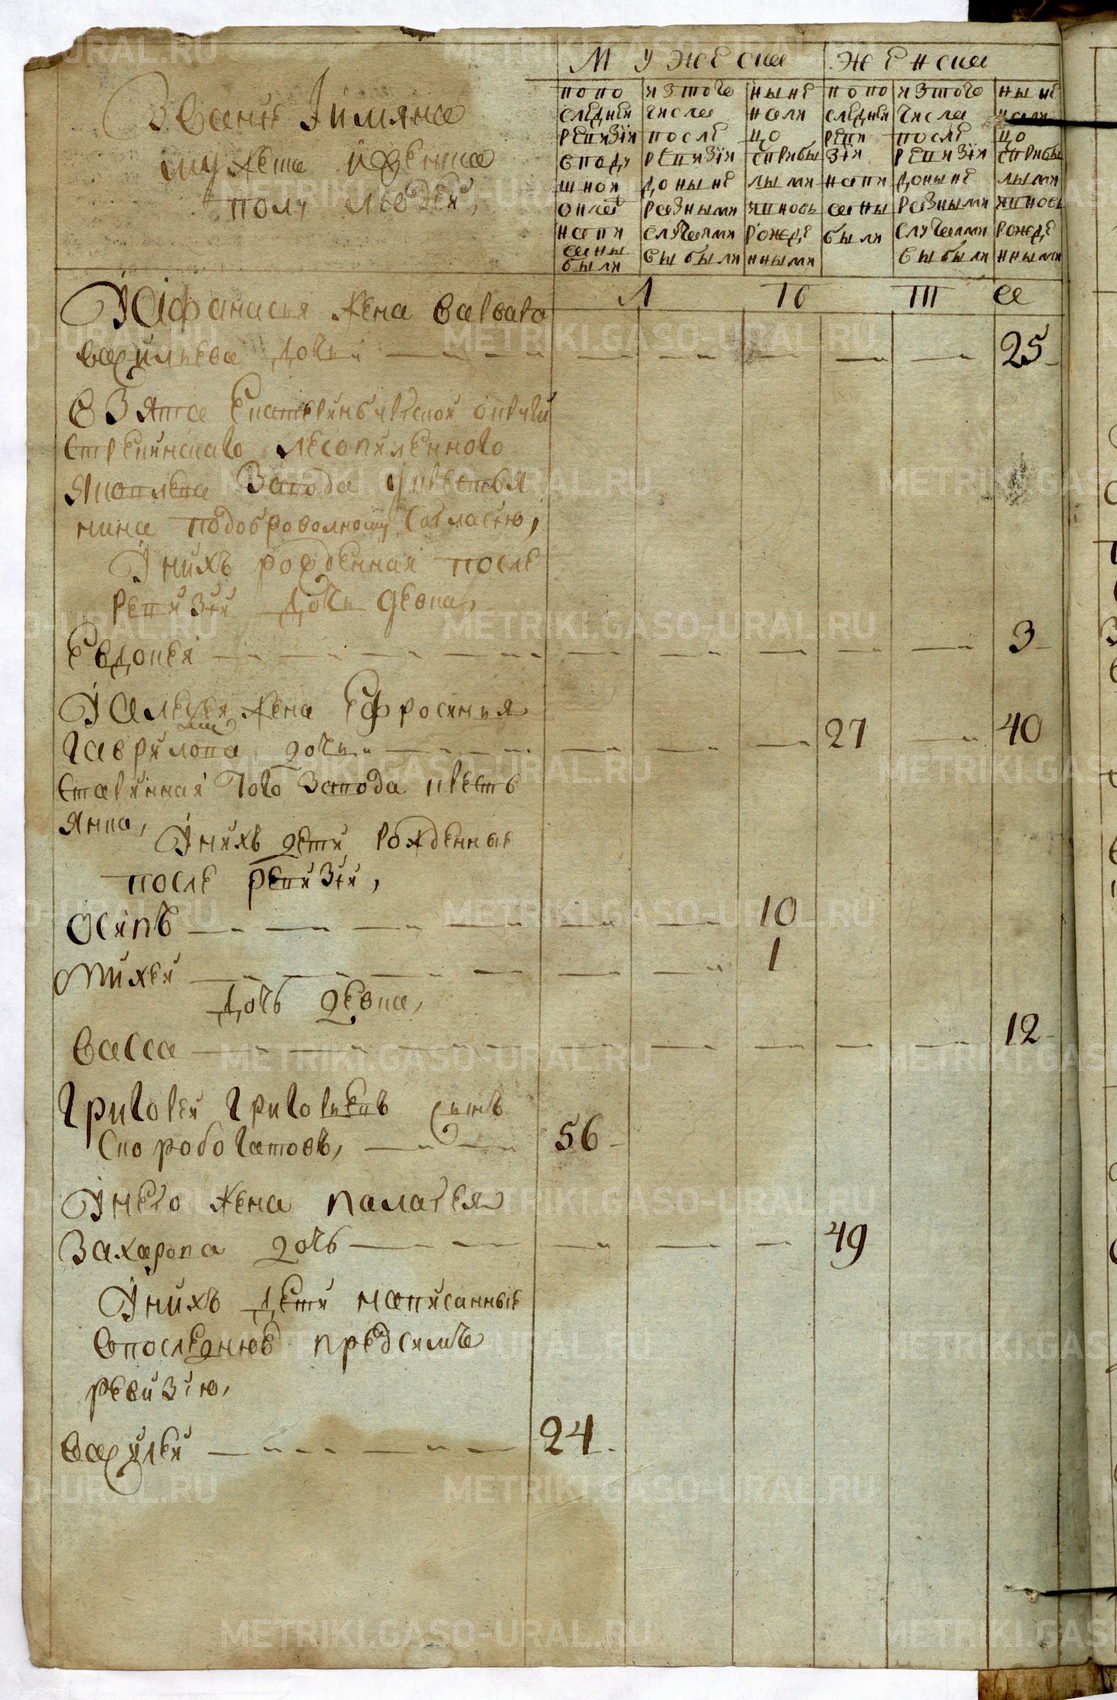 Мужеска
Женска
Званiе Iимяна
мужеска iженска
полу людей,
попо
следней
ревизiи
вподу
шной
окла
напи
саны
были
изтого
числа
после
ревизiи
доныне
разными
случаями
выбыли
ныне
нали
цо
сприбы
лыми
ивновь
рожде
нными
попо
следней
реви
зiи
напи
саны
были
изтого
числа
после
ревизiи
доныне
разными
случаями
выбыли
ныне
нали
цо
сприбы
лыми
ивновь
рожде
нными
Л Ю П а
УАфанасья жена варвара
васильева дочь 25
взята
лесопиленного
Яковлева Завода крестья
нина подобровольному согласию,
Унихъ рожденная после
ревизiи дочь девка,
Евдокея 3
УАлексея жена Ефросинья
Гаврилова дочь 27 40
старинная того Завода кресть
янка,
Унихъ дети рожденные
после ревизiи,
Осипъ 10
Михей 1
дочь девка,
васса 12
Григорей Григорьевъ сынъ
Скоробогатовъ, 56
Унего жена палагея
Захарова дочь 49
Унихъ дети написанные
впоследнюю предсимъ
ревизiю,
василей 24
METRIKI.GASO-URAL.RU